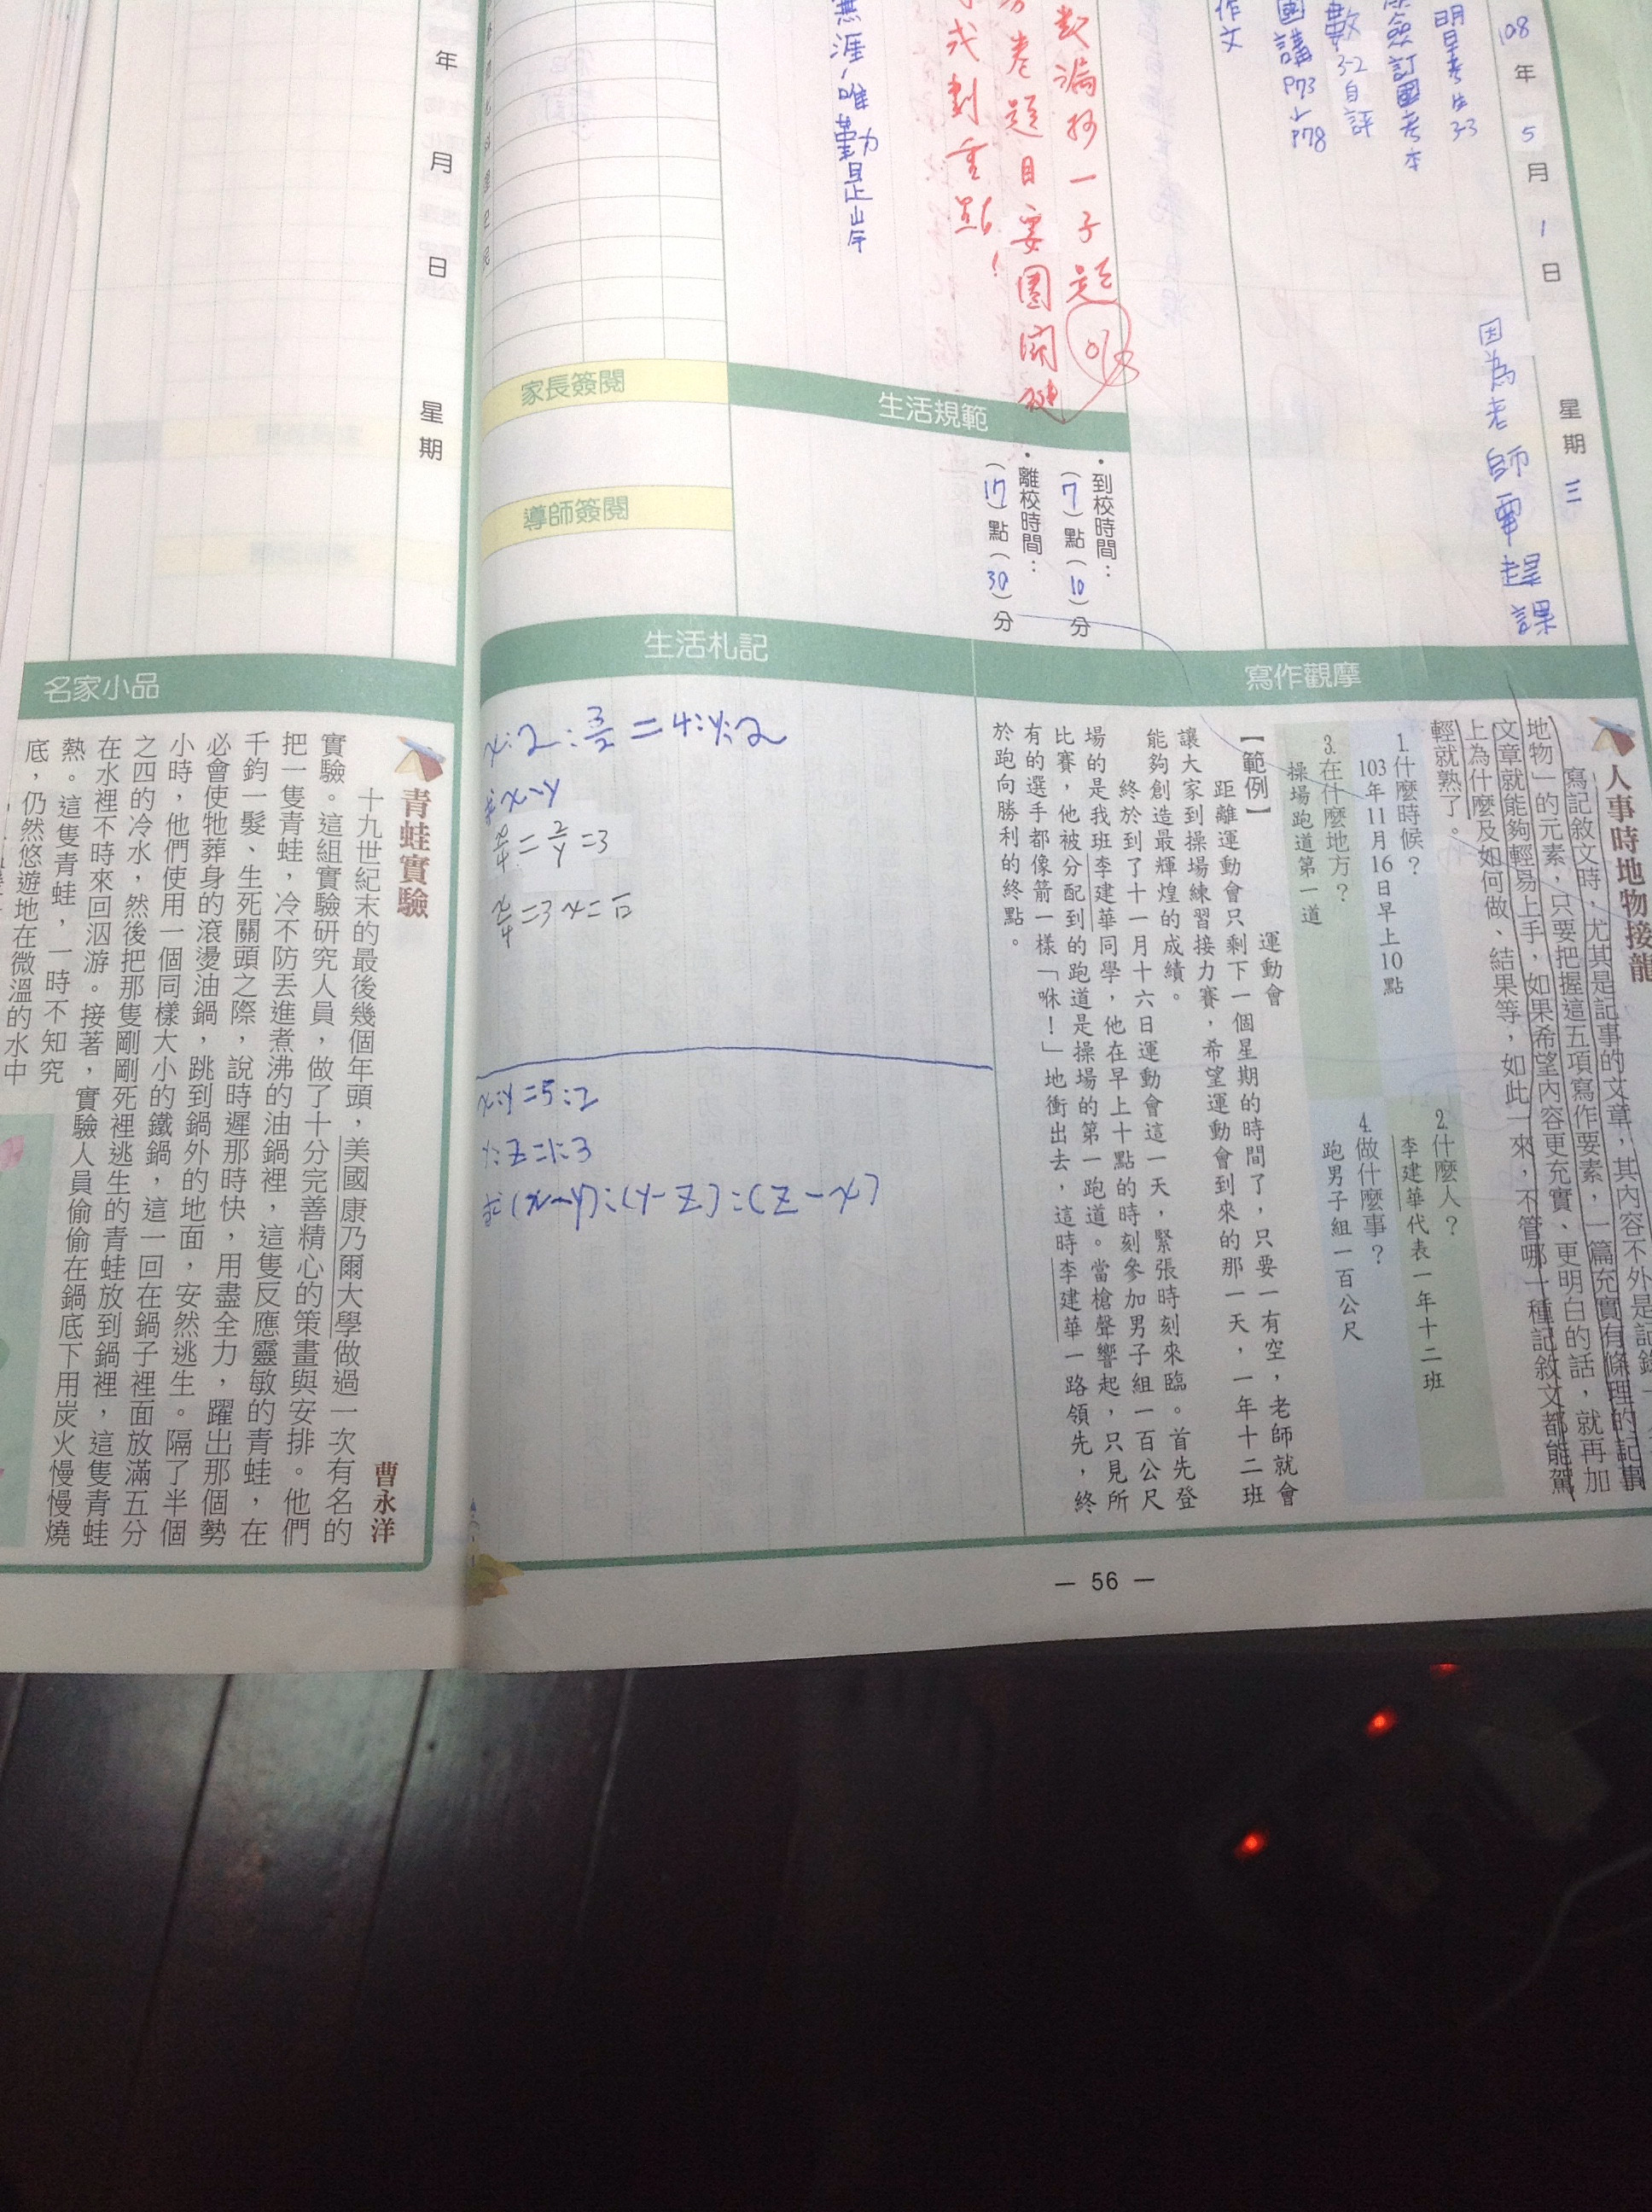 108年5月1日 星期三
因為老師要趕課
數3-2自評
國講P73~P78
作文
漏抄一子題
卷題目要圈關鍵
劃重點!
無涯,唯勤是岸
家長簽閱
導師簽閱
生活規範
・到校時間:
(7)點(10)分
・離校時間:
(17)點(30)分
寫作觀摩
人事時地物接龍
寫記敘文時,尤其是記事的文章,其內容不外是記錄
地物」的元素,只要把握這五項寫作要素,一篇充實有條理的記事
文章就能夠輕易上手,如果希望內容更充實、更明白的話,就再加
上為什麼及如何做、結果等,如此一來,不管哪一種記敘文都能駕
輕就熟了。
1.什麼時候?
103年11月16日早上10點
2.什麼人?
李建華代表一年十二班
3.在什麼地方?
操場跑道第一道
4.做什麼事?
跑男子組一百公尺
【範例】
運動會
距離運動會只剩下一個星期的時間了,只要一有空,老師就會
讓大家到操場練習接力賽,希望運動會到來的那一天,一年十二班
能夠創造最輝煌的成績。
終於到了十一月十六日運動會這一天,緊張時刻來臨。首先登
場的是我班李建華同學,他在早上十點的時刻參加男子組一百公尺
比賽,他被分配到的跑道是操場的第一跑道。當槍聲響起,只見所
有的選手都像箭一樣「咻!」地衝出去,這時李建華一路領先,終
於跑向勝利的終點。
生活札記
x:2:3/2=4:y:2
求x、y
x/4=2/y=3
x/4=3 x=12
x:y=5:2
y:z=1:3
求(x-y):(y-z):(z-x)
— 56 —
年 月 日 星期
名家小品
青蛙實驗
曹永洋
十九世紀末的最後幾個年頭,美國康乃爾大學做過一次有名的
實驗。這組實驗研究人員,做了十分完善精心的策畫與安排。他們
把一隻青蛙,冷不防丟進煮沸的油鍋裡,這隻反應靈敏的青蛙,在
千鈞一髮、生死關頭之際,說時遲那時快,用盡全力,躍出那個勢
必會使牠葬身的滾燙油鍋,跳到鍋外的地面,安然逃生。隔了半個
小時,他們使用一個同樣大小的鐵鍋,這一回在鍋子裡面放滿五分
之四的冷水,然後把那隻剛剛死裡逃生的青蛙放到鍋裡,這隻青蛙
在水裡不時來回泅游。接著,實驗人員偷偷在鍋底下用炭火慢慢燒
熱。這隻青蛙,一時不知究
底,仍然悠遊地在微溫的水中